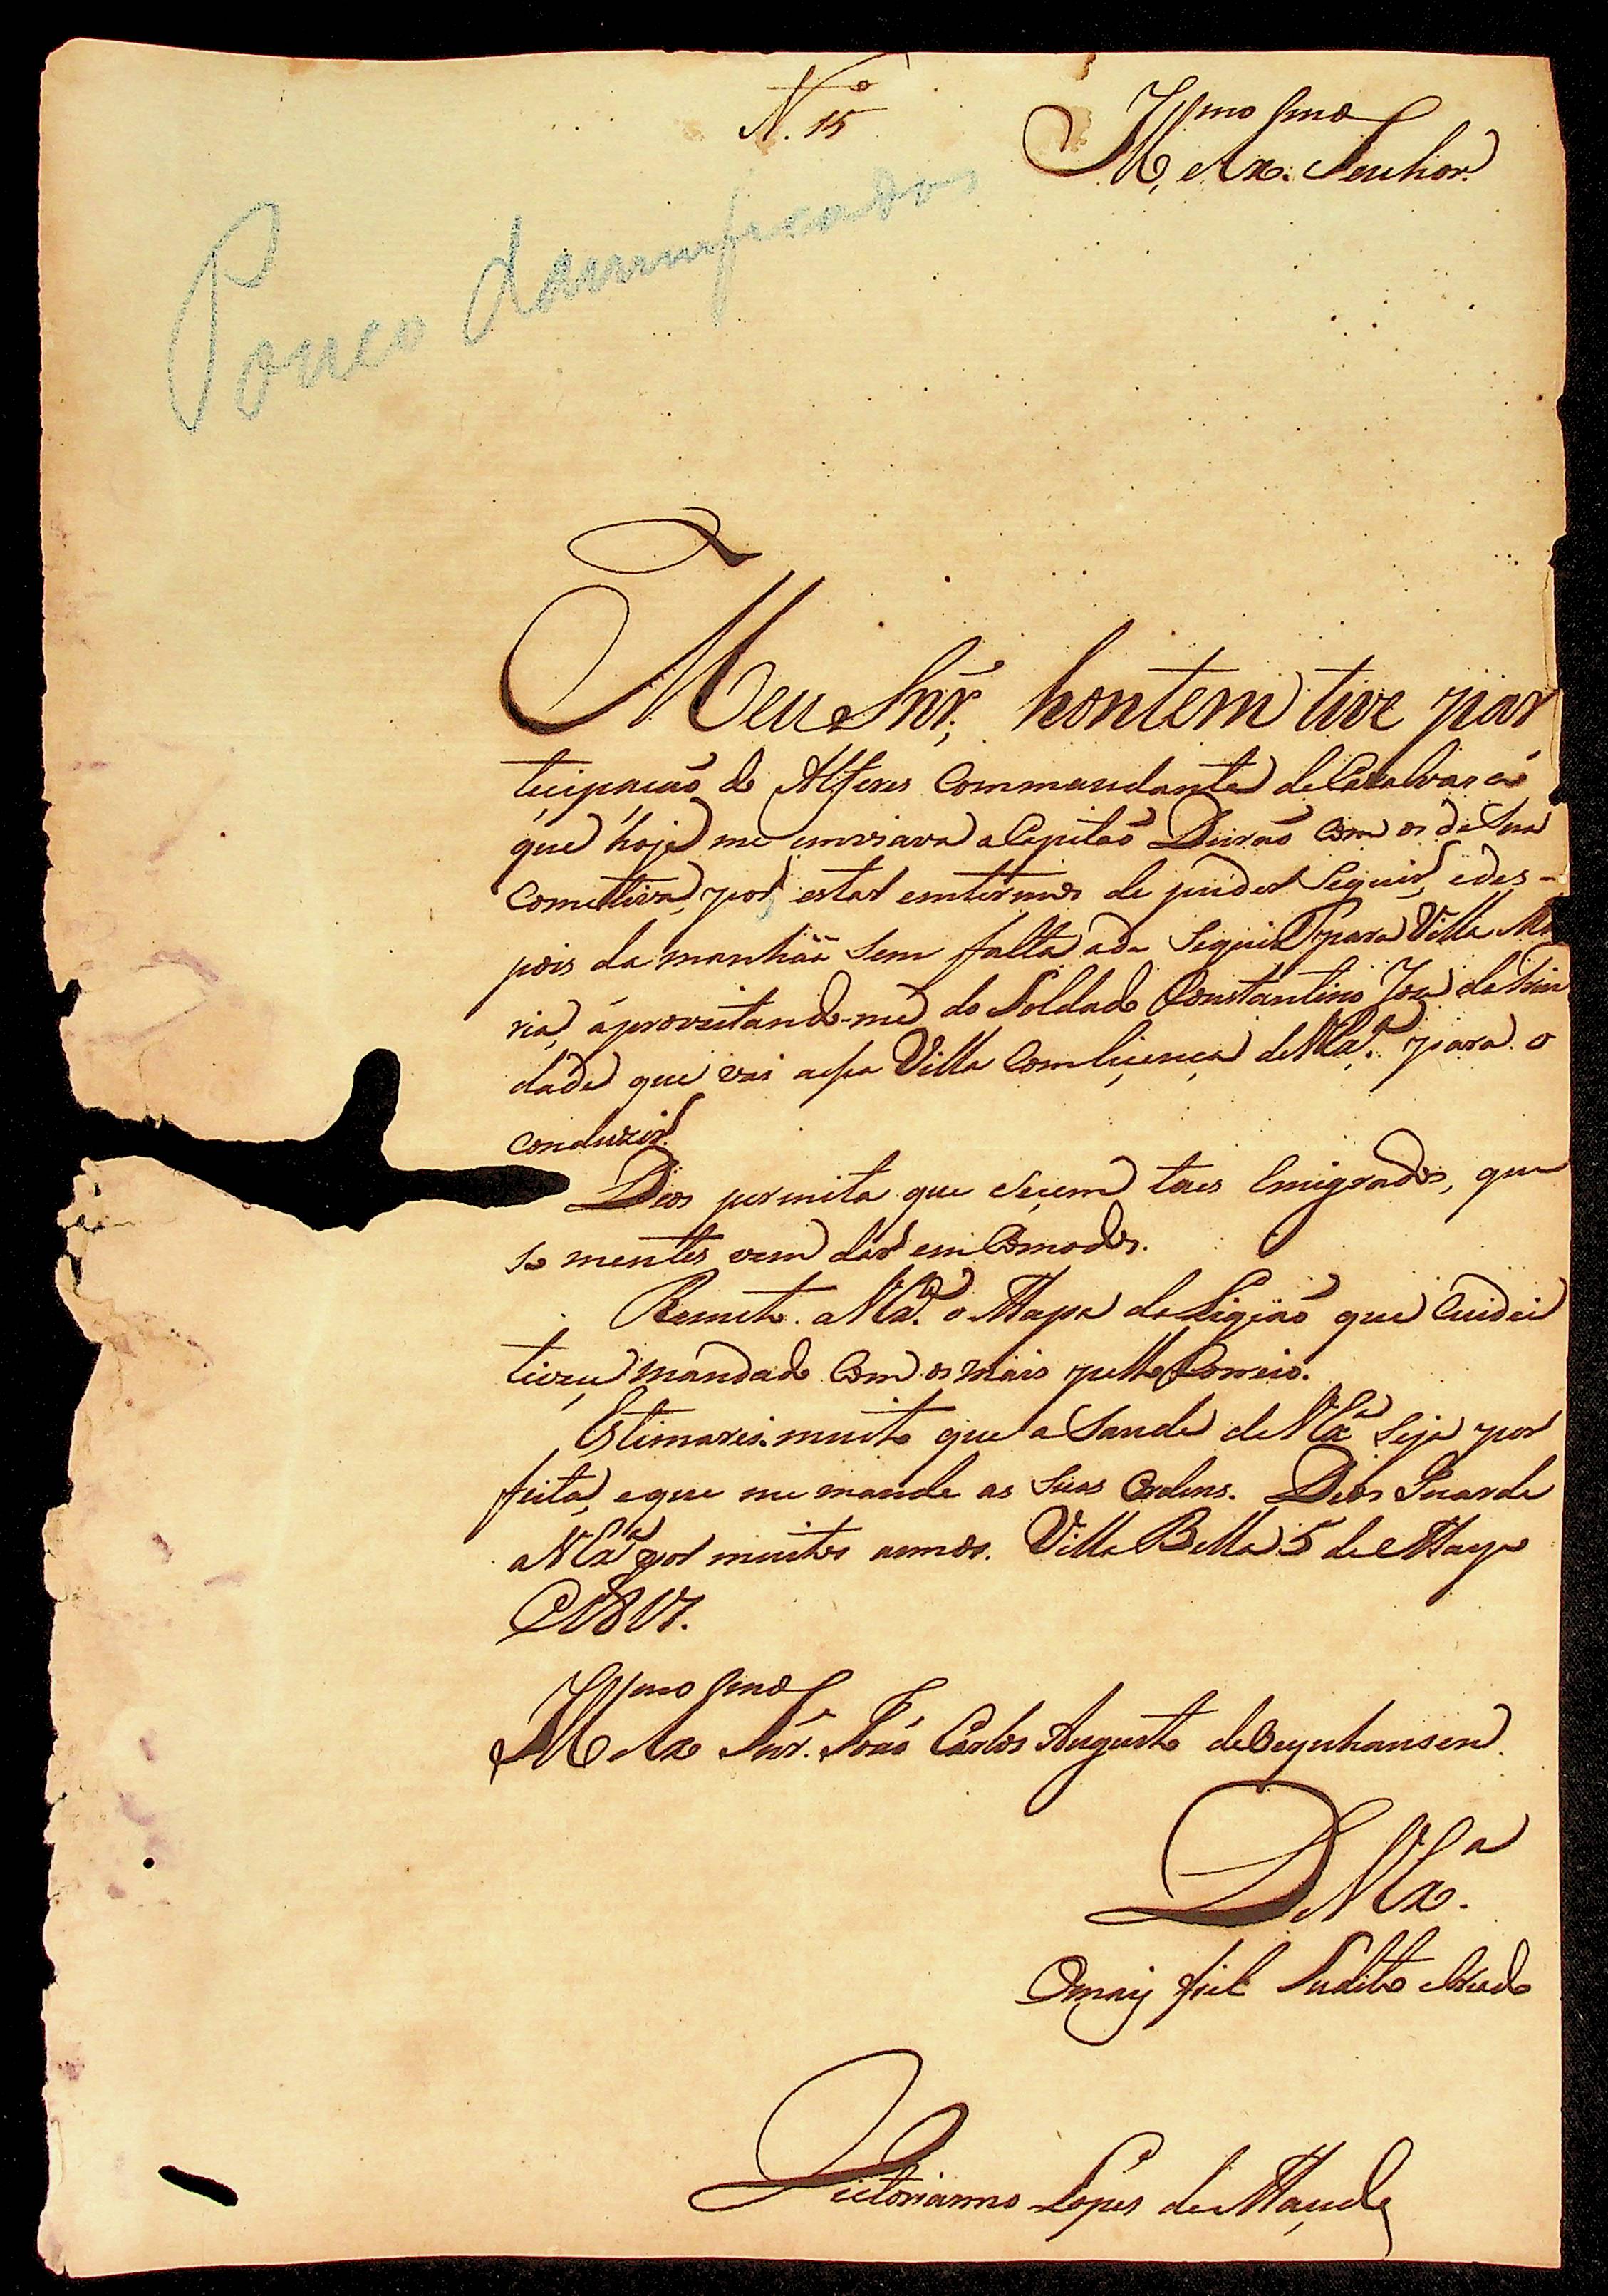 N.º 15
Ill.mo Ex.mo Senhor
Pouco damnificados
Meu Snr., hontem tive par
ticipacaõ do Alferes Commandante de Casalvasco
que hoje me inviava o Capitaõ Duraõ com os da Sua
Comettiva, por estar em termos de puder Seguir, e des-
pois da manhãa Sem falta ade Seguir para Villa Ma
ria, aproveitando-me do Soldado Constantino Joze da Trin
dade que vai a essa Villa Com liçença de V Ex.ª para o
Conduzir.
Deos permita que Seçem taes Emigrados, que
So mentes vem dar em Comodos.
Remeto a V Ex.ª o Mapa da Ligiaõ que Cuidei
tivece mandado Com os mais pello Correio.
Estimarei muito que a Saude de V Ex.ª Seja per
feita, e que me mande as Suas Ordens. Deos Guarde
a V Ex.ª por muitos annos. Villa Bella 5 de Mayo
de 1817.
Ill.mo Ex.mo Snr. Joaõ Carlos Augusto de Oeynhausen.
D V Ex.ª
O mais fiel Sudito Criado
Victorianno Lopes de Maçedo